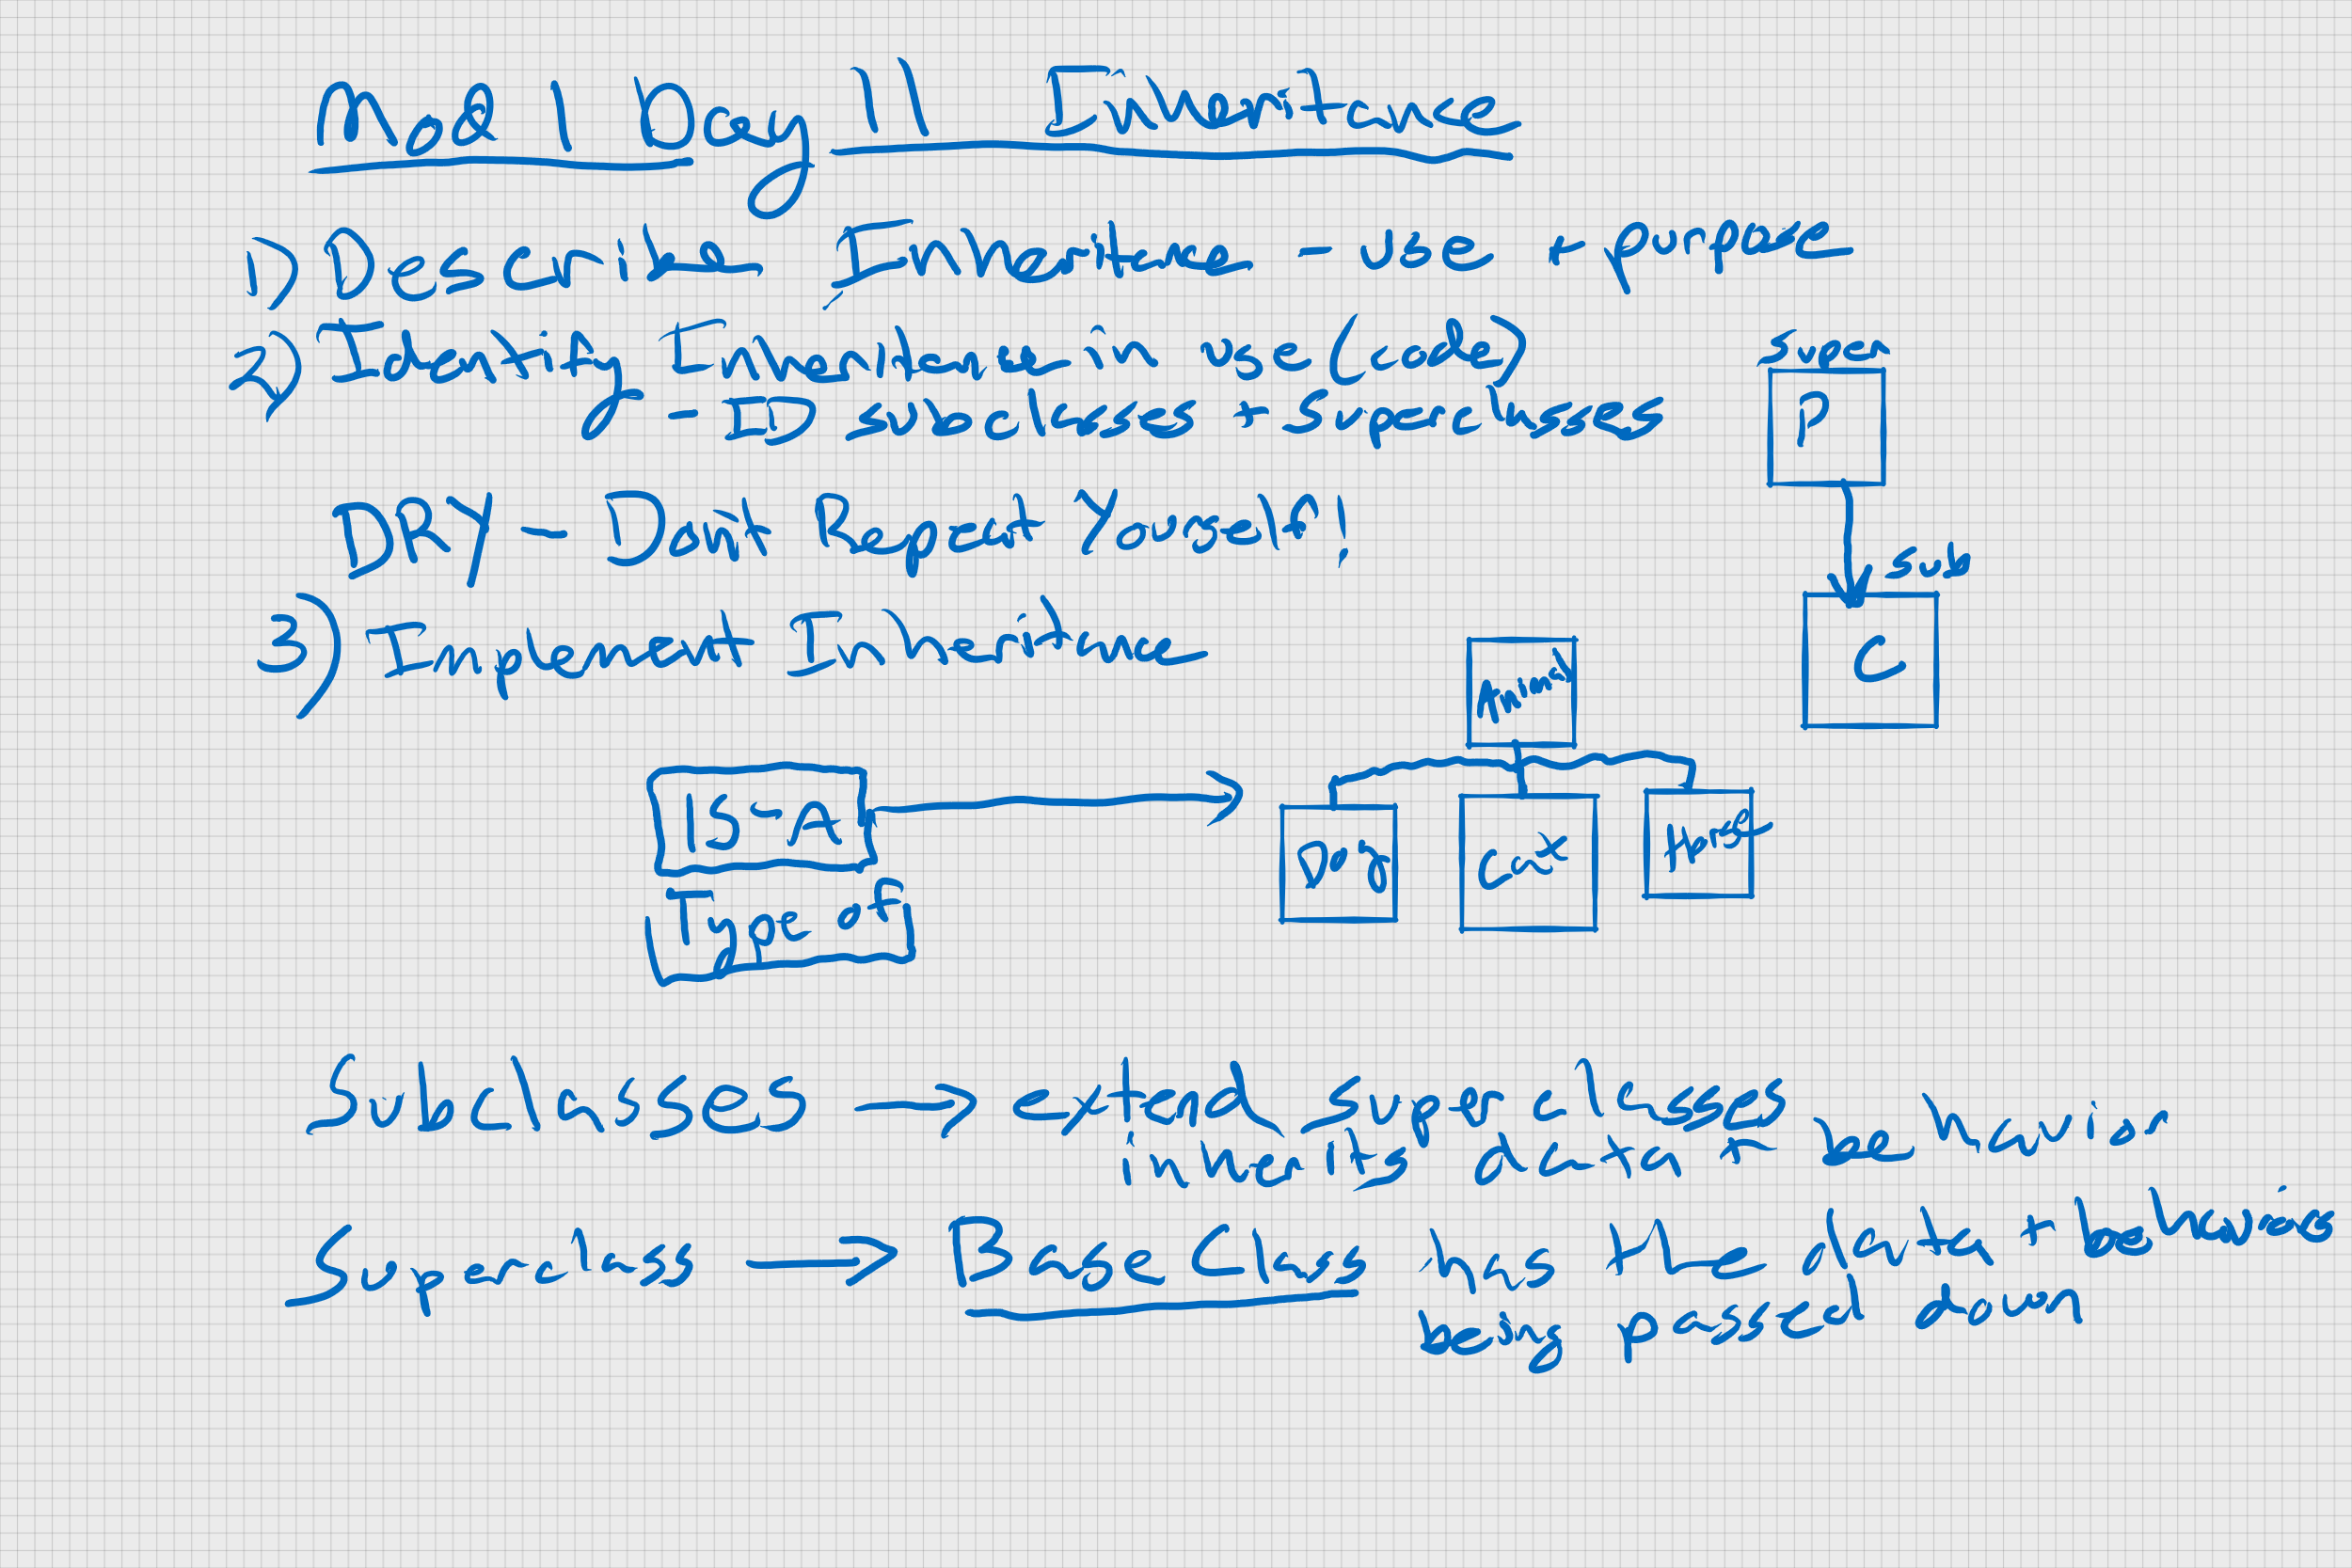 Mod 1 Day 11 Inheritance
1) Describe Inheritance - use + purpose
2) Identify Inheritance in use (code)
- ID subclasses + Superclasses
super
P
DRY - Don't Repeat Yourself!
sub
C
3) Implement Inheritance
Animal
IS-A
Dog Cat Horse
Type of
Subclasses → extend superclasses
inherits data + behavior
Superclass → Base Class has the data + behaviors
being passed down